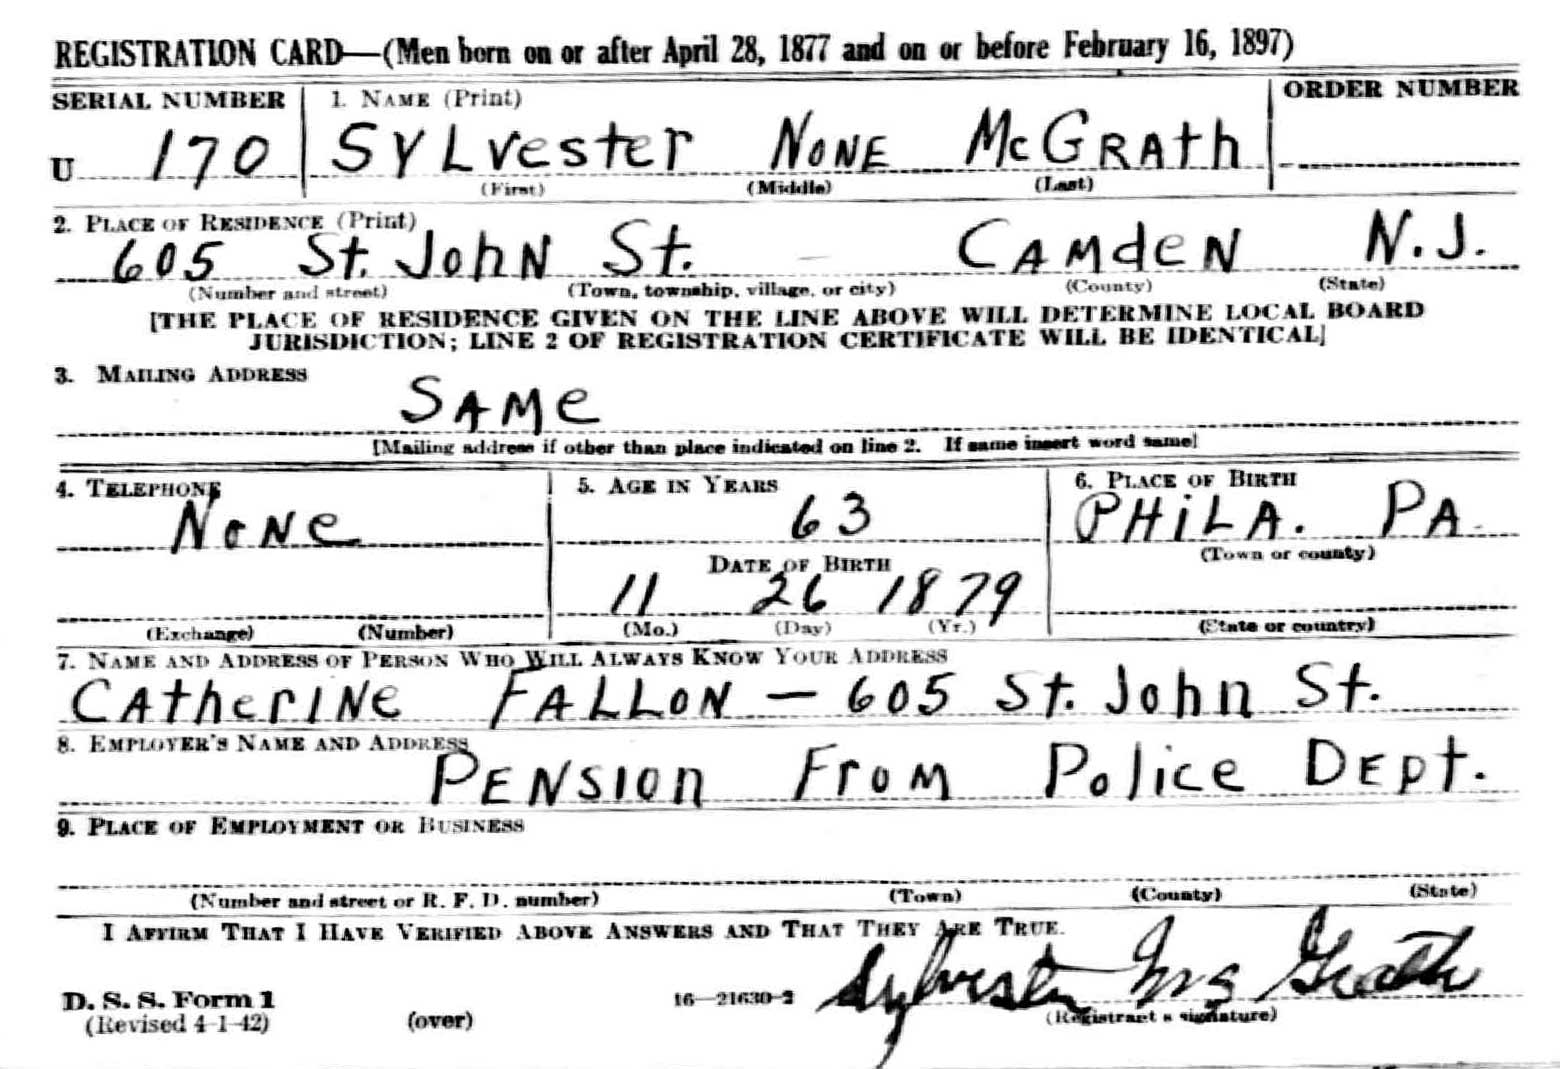 REGISTRATION CARD—(Men born on or after April 28, 1877 and on or before February 16, 1897)
SERIAL NUMBER 1. NAME (Print) ORDER NUMBER
U 170 SYLvester NONE McGRAth
(First) (Middle) (Last)
2. PLACE OF RESIDENCE (Print)
605 St. JohN St. CAMdeN N.J.
(Number and street) (Town, township, village, or city) (County) (State)
[THE PLACE OF RESIDENCE GIVEN ON THE LINE ABOVE WILL DETERMINE LOCAL BOARD
JURISDICTION; LINE 2 OF REGISTRATION CERTIFICATE WILL BE IDENTICAL]
3. MAILING ADDRESS
SAMe
[Mailing address if other than place indicated on line 2. If same insert word same]
4. TELEPHONE 5. AGE IN YEARS 6. PLACE OF BIRTH
NoNe 63 PHiLA. PA
(Town or county)
DATE OF BIRTH
11 26 1879
(Exchange) (Number) (Mo.) (Day) (Yr.) (State or country)
7. NAME AND ADDRESS OF PERSON WHO WILL ALWAYS KNOW YOUR ADDRESS
CAtherINe FALLON — 605 St. John St.
8. EMPLOYER'S NAME AND ADDRESS
PENSION From Police DEpt.
9. PLACE OF EMPLOYMENT OR BUSINESS
(Number and street or R. F. D. number) (Town) (County) (State)
I AFFIRM THAT I HAVE VERIFIED ABOVE ANSWERS AND THAT THEY ARE TRUE.
Sylvester McGrath
D. S. S. Form 1 16—21630-2
(Revised 4-1-42) (over) (Registrant's signature)